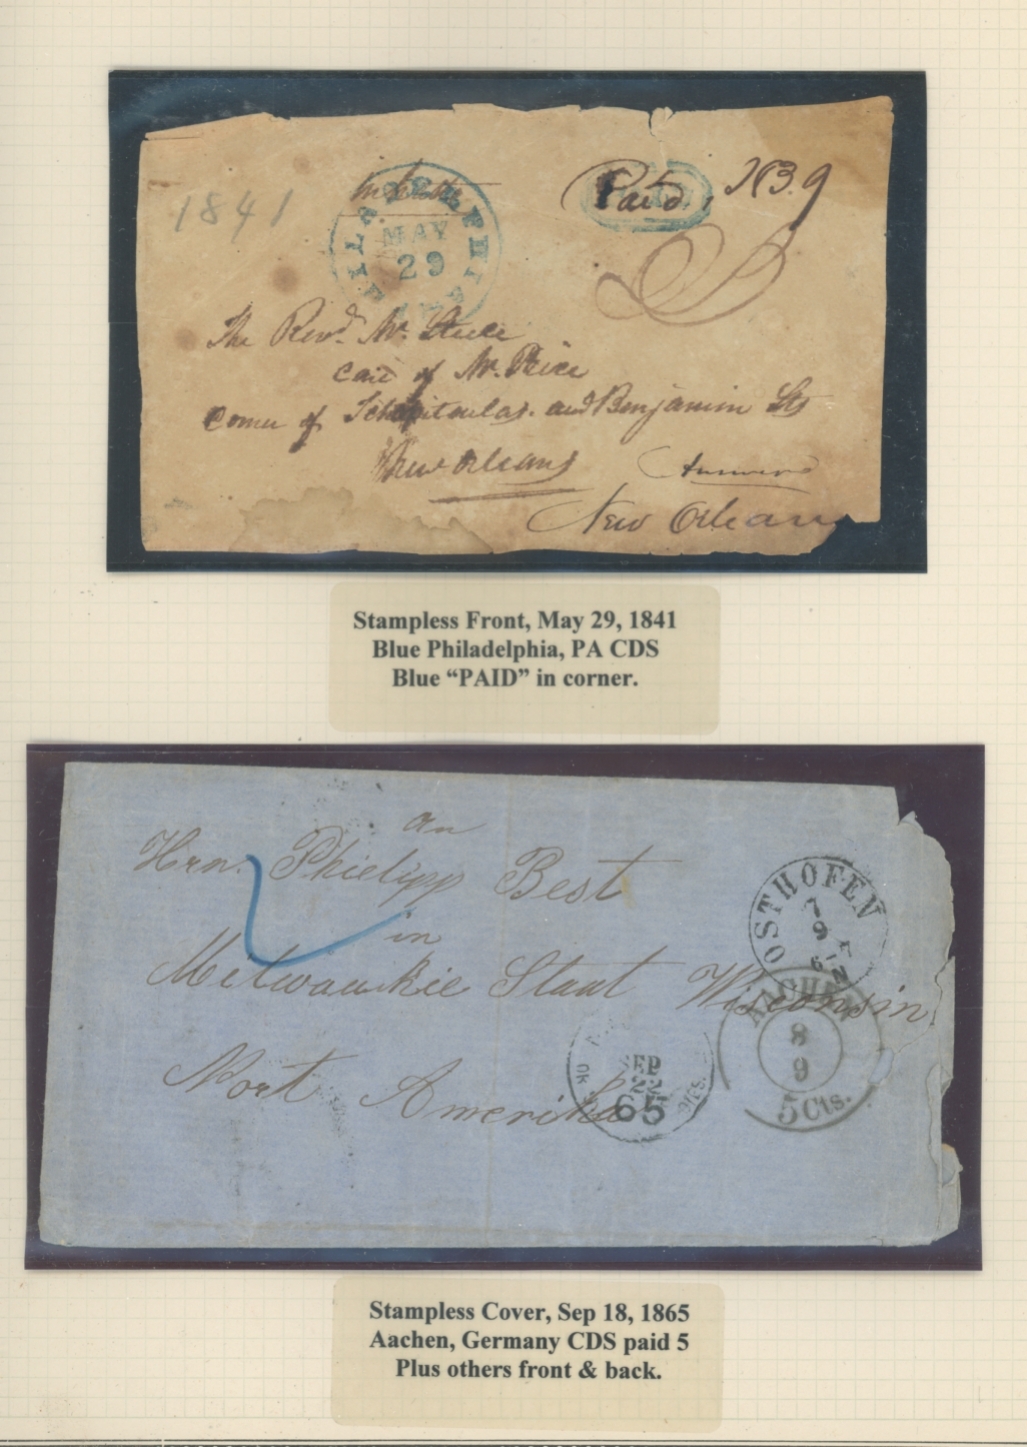 1841
PHILADELPHIA
MAY
29
Paid, 183.9
The Revd. Mr. Steele
care of Mr. Price
corner of Tchapitoulas. and Benjamin Sts
New Orleans
New Orleans
Stampless Front, May 29, 1841
Blue Philadelphia, PA CDS
Blue “PAID” in corner.
an
Hrn. Phielipp Best
in
Milwaukie Staat Wisconsin
Nort Amerika
OSTHOFEN
7
9
AACHEN
8
9
5 Cts.
SEP
22
65
Stampless Cover, Sep 18, 1865
Aachen, Germany CDS paid 5
Plus others front & back.